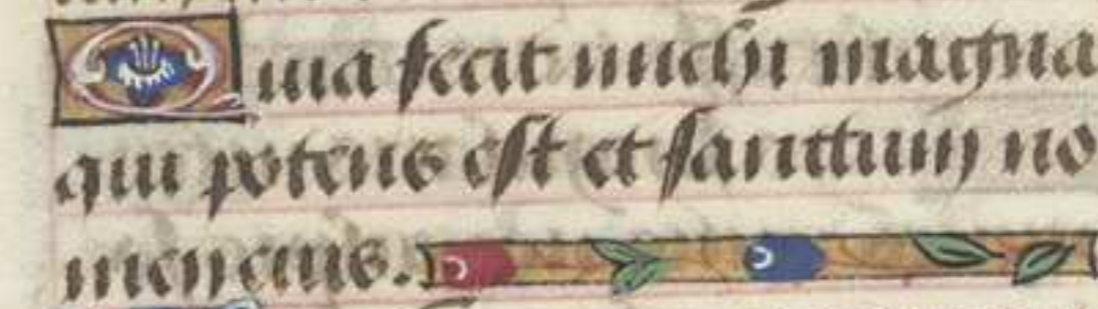 Quia fecit michi magna
qui potens est et sanctum no
men eius.